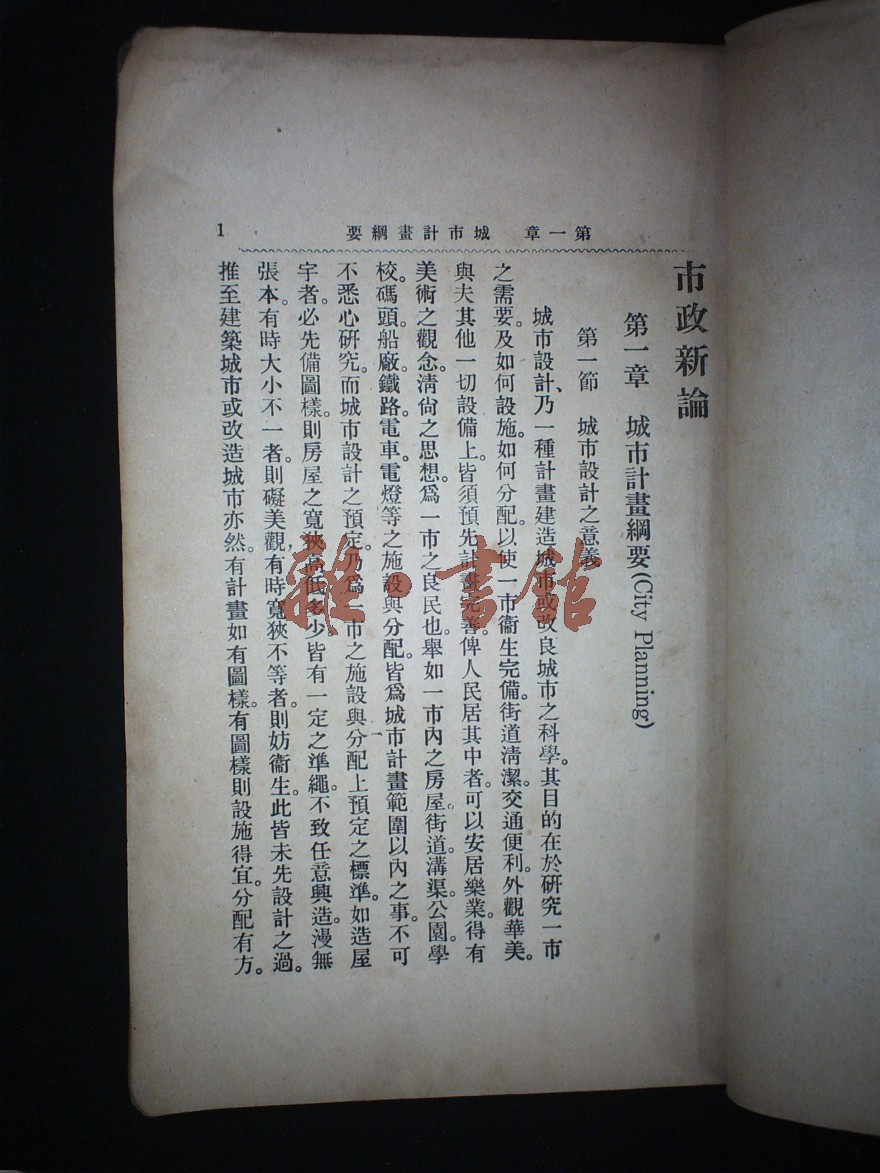 第一章　城市計畫綱要
1
市政新論
第一章　城市計畫綱要(City Planning)
第一節　城市設計之意義
城市設計、乃一種計畫建造城市或改良城市之科學。其目的在於研究一市
之需要。及如何設施。如何分配。以使一市衞生完備。街道淸潔。交通便利。外觀華美。
與夫其他一切設備上。皆須預先計畫完善。俾人民居其中者。可以安居樂業。得有
美術之觀念。淸尙之思想。爲一市之良民也。舉如一市內之房屋。街道。溝渠。公園。學
校。碼頭。船廠。鐵路。電車。電燈等之施設與分配。皆爲城市計畫範圍以內之事。不可
不悉心研究。而城市設計之預定。乃爲一市之施設與分配上預定之標準。如造屋
宇者。必先備圖樣。則房屋之寬狹高低多少皆有一定之準繩。不致任意興造。漫無
張本。有時大小不一者。則礙美觀。有時寬狹不等者。則妨衞生。此皆未先設計之過。
推至建築城市或改造城市亦然。有計畫如有圖樣。有圖樣則設施得宜。分配有方。
雜·書館